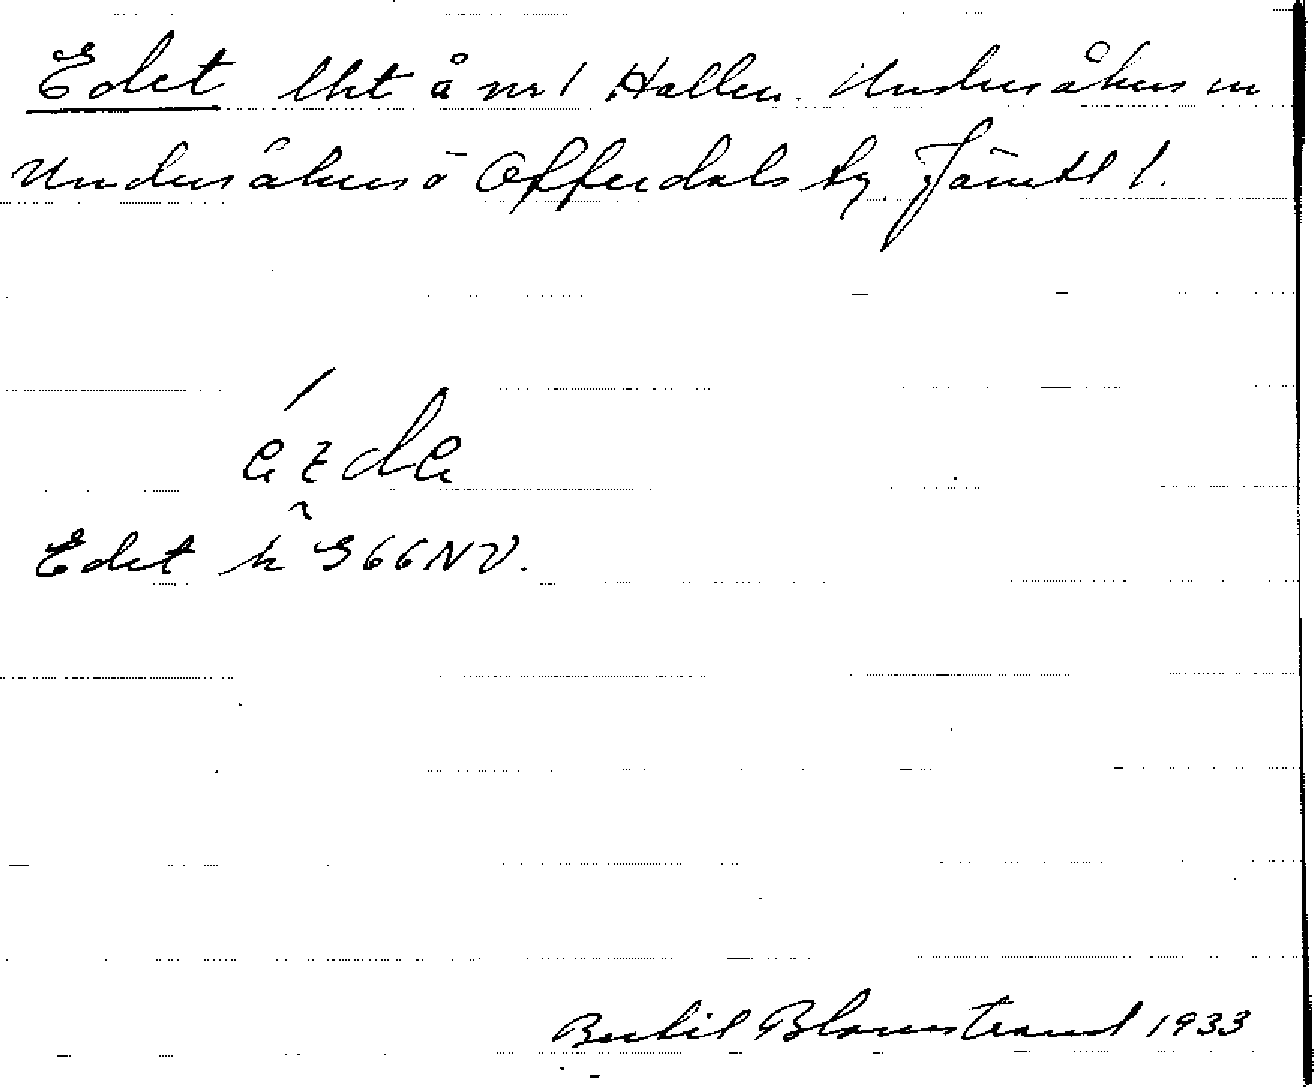 Edet lht å nr 1 Hallen. Undersåkers sn
Undersåkers o Offerdals tg. Jämtl l.
Edet k 966NV.
Bertil Blomstrand 1933